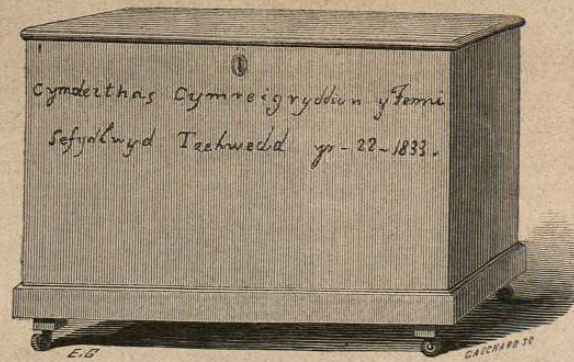 Cymdeithas Cymreigyddion y Fenni
Sefydlwyd Tachwedd yr - 22 - 1833.
E.G
GAUCHARD SC